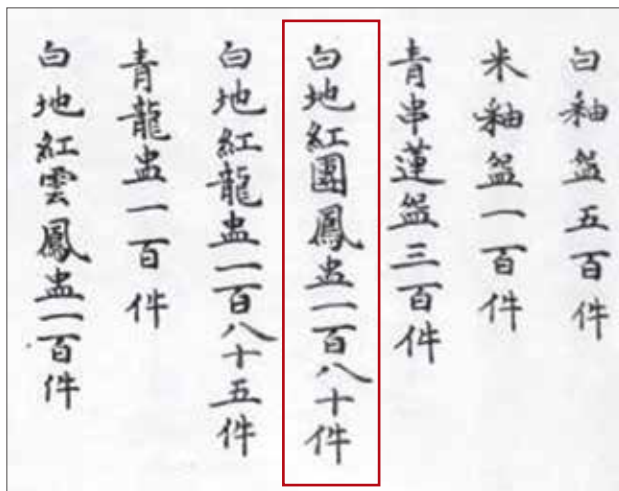 白釉盌五百件
米釉盌一百件
青串蓮盌三百件
白地紅團鳳盅一百八十件
白地紅龍盅一百八十五件
青龍盅一百件
白地紅雲鳳盅一百件